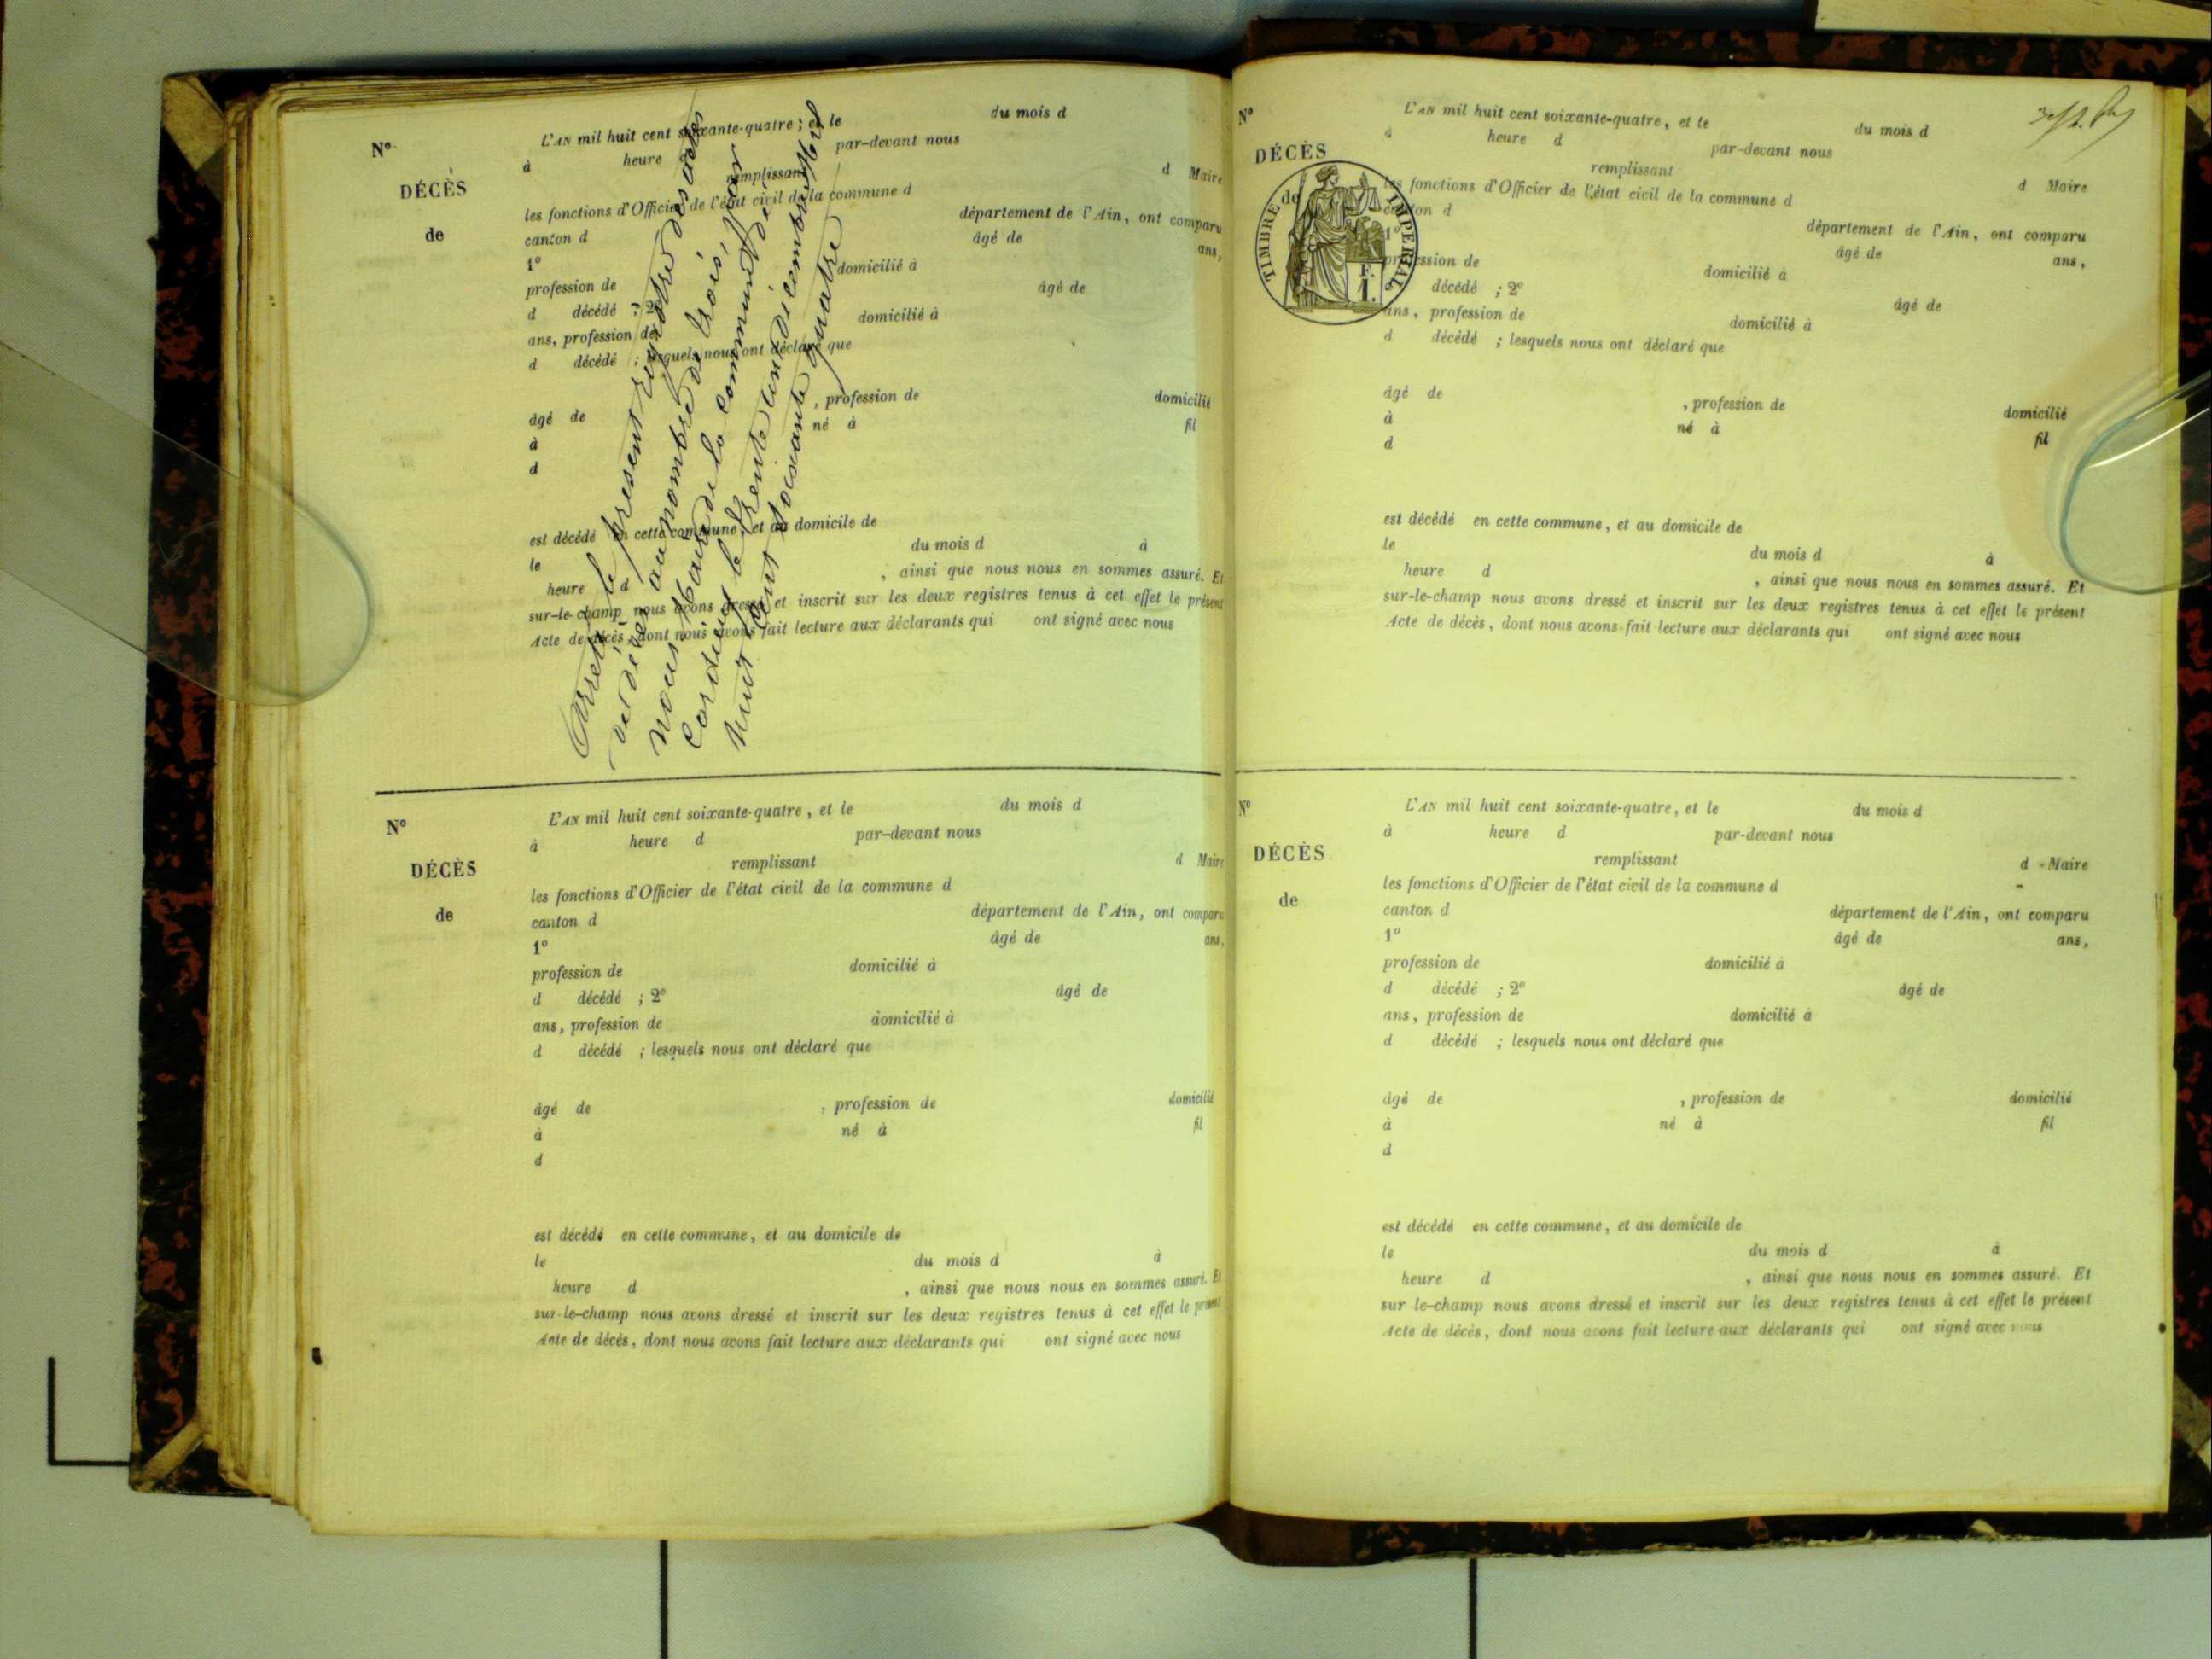 Nº
DÉCÈS
de
L'AN mil huit cent soixante-quatre ; et le du mois d
à heure d par-devant nous
remplissant d Maire
les fonctions d'Officier de l'état civil de la commune d
canton d département de l'Ain, ont comparu
1º âgé de ans,
profession de domicilié à
d décédé ; 2º âgé de
ans, profession de domicilié à
d décédé ; lesquels nous ont déclaré que
âgé de , profession de domicilié
à né à fil
d
est décédé en cette commune, et au domicile de
le du mois d à
heure d , ainsi que nous nous en sommes assuré. Et
sur-le-champ nous avons dressé et inscrit sur les deux registres tenus à cet effet le présent
Acte de décès, dont nous avons fait lecture aux déclarants qui ont signé avec nous
Arrêté le présent registre des actes
de décès au nombre de trois, par
nous Maire de la commune de
le trente un décembre Mil
huit cent soixante quatre
Nº
DÉCÈS
de
L'AN mil huit cent soixante-quatre , et le du mois d
à heure d par-devant nous
remplissant d Maire
les fonctions d'Officier de l'état civil de la commune d
canton d département de l'Ain, ont comparu
1º âgé de ans,
profession de domicilié à
d décédé ; 2º âgé de
ans, profession de domicilié à
d décédé ; lesquels nous ont déclaré que
âgé de , profession de domicilié
à né à fil
d
est décédé en cette commune, et au domicile de
le du mois d à
heure d , ainsi que nous nous en sommes assuré. Et
sur-le-champ nous avons dressé et inscrit sur les deux registres tenus à cet effet le présent
Acte de décès, dont nous avons fait lecture aux déclarants qui ont signé avec nous
Nº
DÉCÈS
de
TIMBRE IMPERIAL
F.
1.
L'AN mil huit cent soixante-quatre, et le du mois d
à heure d par-devant nous
remplissant d Maire
les fonctions d'Officier de l'état civil de la commune d
canton d département de l'Ain, ont comparu
1º âgé de ans,
profession de domicilié à
d décédé ; 2º âgé de
ans, profession de domicilié à
d décédé ; lesquels nous ont déclaré que
âgé de , profession de domicilié
à né à fil
d
est décédé en cette commune, et au domicile de
le du mois d à
heure d , ainsi que nous nous en sommes assuré. Et
sur-le-champ nous avons dressé et inscrit sur les deux registres tenus à cet effet le présent
Acte de décès, dont nous avons fait lecture aux déclarants qui ont signé avec nous
Nº
DÉCÈS
de
L'AN mil huit cent soixante-quatre, et le du mois d
à heure d par-devant nous
remplissant d Maire
les fonctions d'Officier de l'état civil de la commune d
canton d département de l'Ain, ont comparu
1º âgé de ans,
profession de domicilié à
d décédé ; 2º âgé de
ans, profession de domicilié à
d décédé ; lesquels nous ont déclaré que
âgé de , profession de domicilié
à né à fil
d
est décédé en cette commune, et au domicile de
le du mois d à
heure d , ainsi que nous nous en sommes assuré. Et
sur le-champ nous avons dressé et inscrit sur les deux registres tenus à cet effet le présent
Acte de décès, dont nous avons fait lecture aux déclarants qui ont signé avec nous